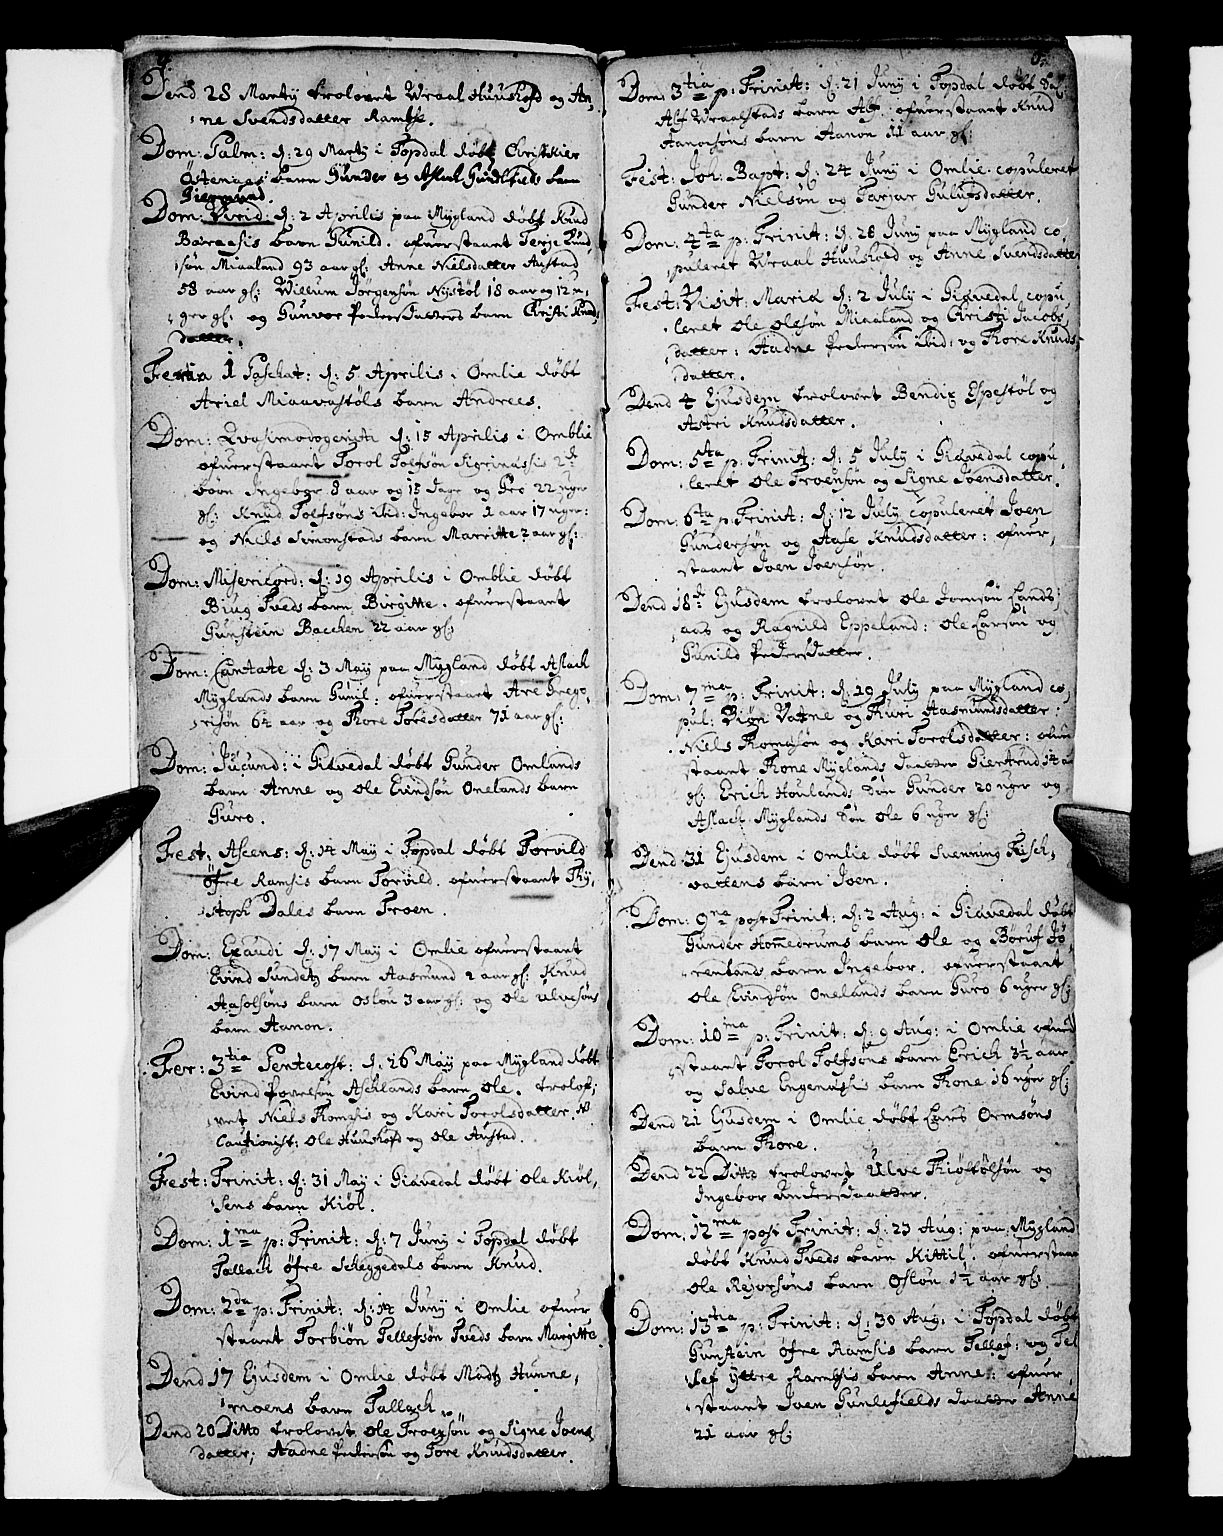 4.
Dend 28 Martij trolovet Wraal Huushofd og An,
ne Svendsdatter Ramse.
Dom: Palm: d: 29 Martij i Topdal døbt Christkier
Østenaas barn Gunder og Aslak Guldfields barn
Giermund.
Dom: Virid: d: 2 Aprilis paa Mÿgland døbt Knud
Barraasis barn Gunild. ofuerstaant Terje Knud
søn Miaaland 93 aar gl: Anne Nielsdatter Austad
58 aar gl: Willum Jørgensøn Nystøl 18 aar og 12 u,
ger gl: og Gunvor Pedersdatters barn Christi Knuds
datter.
Feria 1 Paschat: d: 5 Aprilis i Omlie døbt
Ariel Miaavastøls barn Andrees.
Dom: Qvasimodogeniti d: 15 Aprilis i Omblie
ofuerstaant Torol Tolfsøn Sigrinassis 2de
børn Ingebor 8 aar og 15 dage og Gro 22 uger
gl: Knud Tolfsøns ibid: Ingebor 1 aar 17 uger:
og Niels Simonstads barn Marritte 2 aar gl:
Dom: Misericord: d: 19 Aprilis i Omblie døbt
Biug Tveds barn Birgitte. ofuerstaant
Gunstein Bacchen 22 aar gl:
Dom: Cantate d: 3 Maij paa Mÿgland døbt Aslach
Mÿglands barn Gunil: ofuerstaant Are Grego,
risøn 6½ aar og Thore Toresdatter 71 aar gl:
Dom: Jucund: i Giævedal døbt Gunder Omlands
barn Anne og Ole Evindsøn Onelands barn
Guro.
Fest: Ascens: d: 14 Maij i Topdal døbt Torvild
Øfre Ramsis barn Torvild. ofuerstaant Chÿ,
stoph Dales barn Troen.
Dom: Exaudi d: 17 Maij i Omlie ofuerstaant
Evind Sundets barn Aasmund 2 aar gl: Knud
Aasolsøns barn Osløu 3 aar gl: og Ole Ulvesøns
barn Aanon.
Fer: 3tia Pentecost: d: 26 Maij paa Mÿgland døbt
Evind Povelsøn Aschlands barn Ole. trolof,
vet Niels Thomasis og Kari Torolsdatter, N
Cautionist: Ole Huushofd og Ole Austad.
Fest: Trinit: d: 31 Maij i Giævedal døbt Ole Kiøl,
sens barn Kiøl.
Dom: 1ma p: Trinit: d: 7 Junij i Topdal døbt
Tallach Øfre Scheggedals barn Knud.
Dom: 2da p: Trinit: d: 14 Junij i Omlie ofuer
staant Torbiøn Tellefsøn Tveds barn Margitte
Dend 17 Ejusdem i Omlie døbt Madtz Hunne,
moens barn Tallach
Dend 20 Ditto trolovet Ole Troensøn og Signe Joens
datter; Aadne Pedersøn og Tore Knudsdatter.
5.
Dom: 3tia p: Trinit: d: 21 Junij i Topdal døbt Sal:
Alf Wraalstads barn Alf. ofuerstaant Knud
Aanonsøns barn Aanon 11 aar gl:
Fest: Joh: Bapt: d: 24 Junij i Omlie copuleret
Gunder Nielsøn og Tarjer Gulufsdatter.
Dom: 4ta p: Trinit: d: 28 Junij paa Mÿgland co,
puleret Wraal Huushold og Anne Svendsdatter
Fest: Visit: Mariæ d: 2 Julij i Giævedal copu,
leret Ole Olesøn Miaaland og Christi Jacobs
datter: Aadne Pedersøn ibid: og Thore Knuds,
datter.
Dend 4 Ejusdem trolovet Bendix Espestøl og
Astri Knudsdatter.
Dom: 5ta p: Trinit: d: 5 Julij i Giævedal copu,
leret Ole Troensøn og Signe Joensdatter.
Dom: 6ta p: Trinit: d: 12 Julij copuleret Joen
Gundersøn og Aase Knudsdatter: ofuer,
staant Joen Joensøn.
Dend 18de Ejusdem trolovet Ole Joensøn Lands,
aas og Ragnild Eppeland: Ole Larsøn og
Gunild Pedersdatter.
Dom: 7ma p: Trinit: d: 19 Julij paa Mÿgland co,
pul: Biøn Vatne og Thuri Aasmundsdatter:
Niels Thomasøn og Kari Torolsdatter: ofuer
staant Thone Mÿglands daatter Giertrud 14 aar
gl: Erich Houlands søn Gunder 20 uger og
Aslach Mÿglands søn Ole 6 uger gl:
Dend 31 Ejusdem i Omlie døbt Svenning Fisch,
vattens barn Joen.
Dom: 9na post Trinit: d: 2 Aug: i Giævedal døbt
Gunder Hommedrums barn Ole og Børuf Jø,
rentands barn Ingebor. ofuerstaant
Ole Evindsøn Onelands barn Guro 6 uger gl:
Dom: 10ma p: Trinit: d: 9 Aug: i Omlie ofuer
staant Torol Tolfsøns barn Erich 3½ aar
og Salve Engenessis barn Thone 16 uger gl:
Dend 21 Ejusdem i Omlie døbt Lars Ormsøns
barn Thone.
Dend 22 Ditto trolovet Ulve Thiøstølsøn og
Ingebor Andersdaatter.
Dom: 12ma post Trinit: d: 23 Aug: paa Mÿgland
døbt Knud Tveds barn Kittil: ofuerstaat
Ole Rejersøns barn Osløu 1½ aar gl:
Dom: 13tia p: Trinit: d: 30 Aug: i Topdal døbt
Gunstein Øfre Ramsis barn Tellef: og Tel
lef Ÿttre Ramsis barn Anne: ofuer,
staant Joen Gunlefields daatter Anne
21 aar gl: